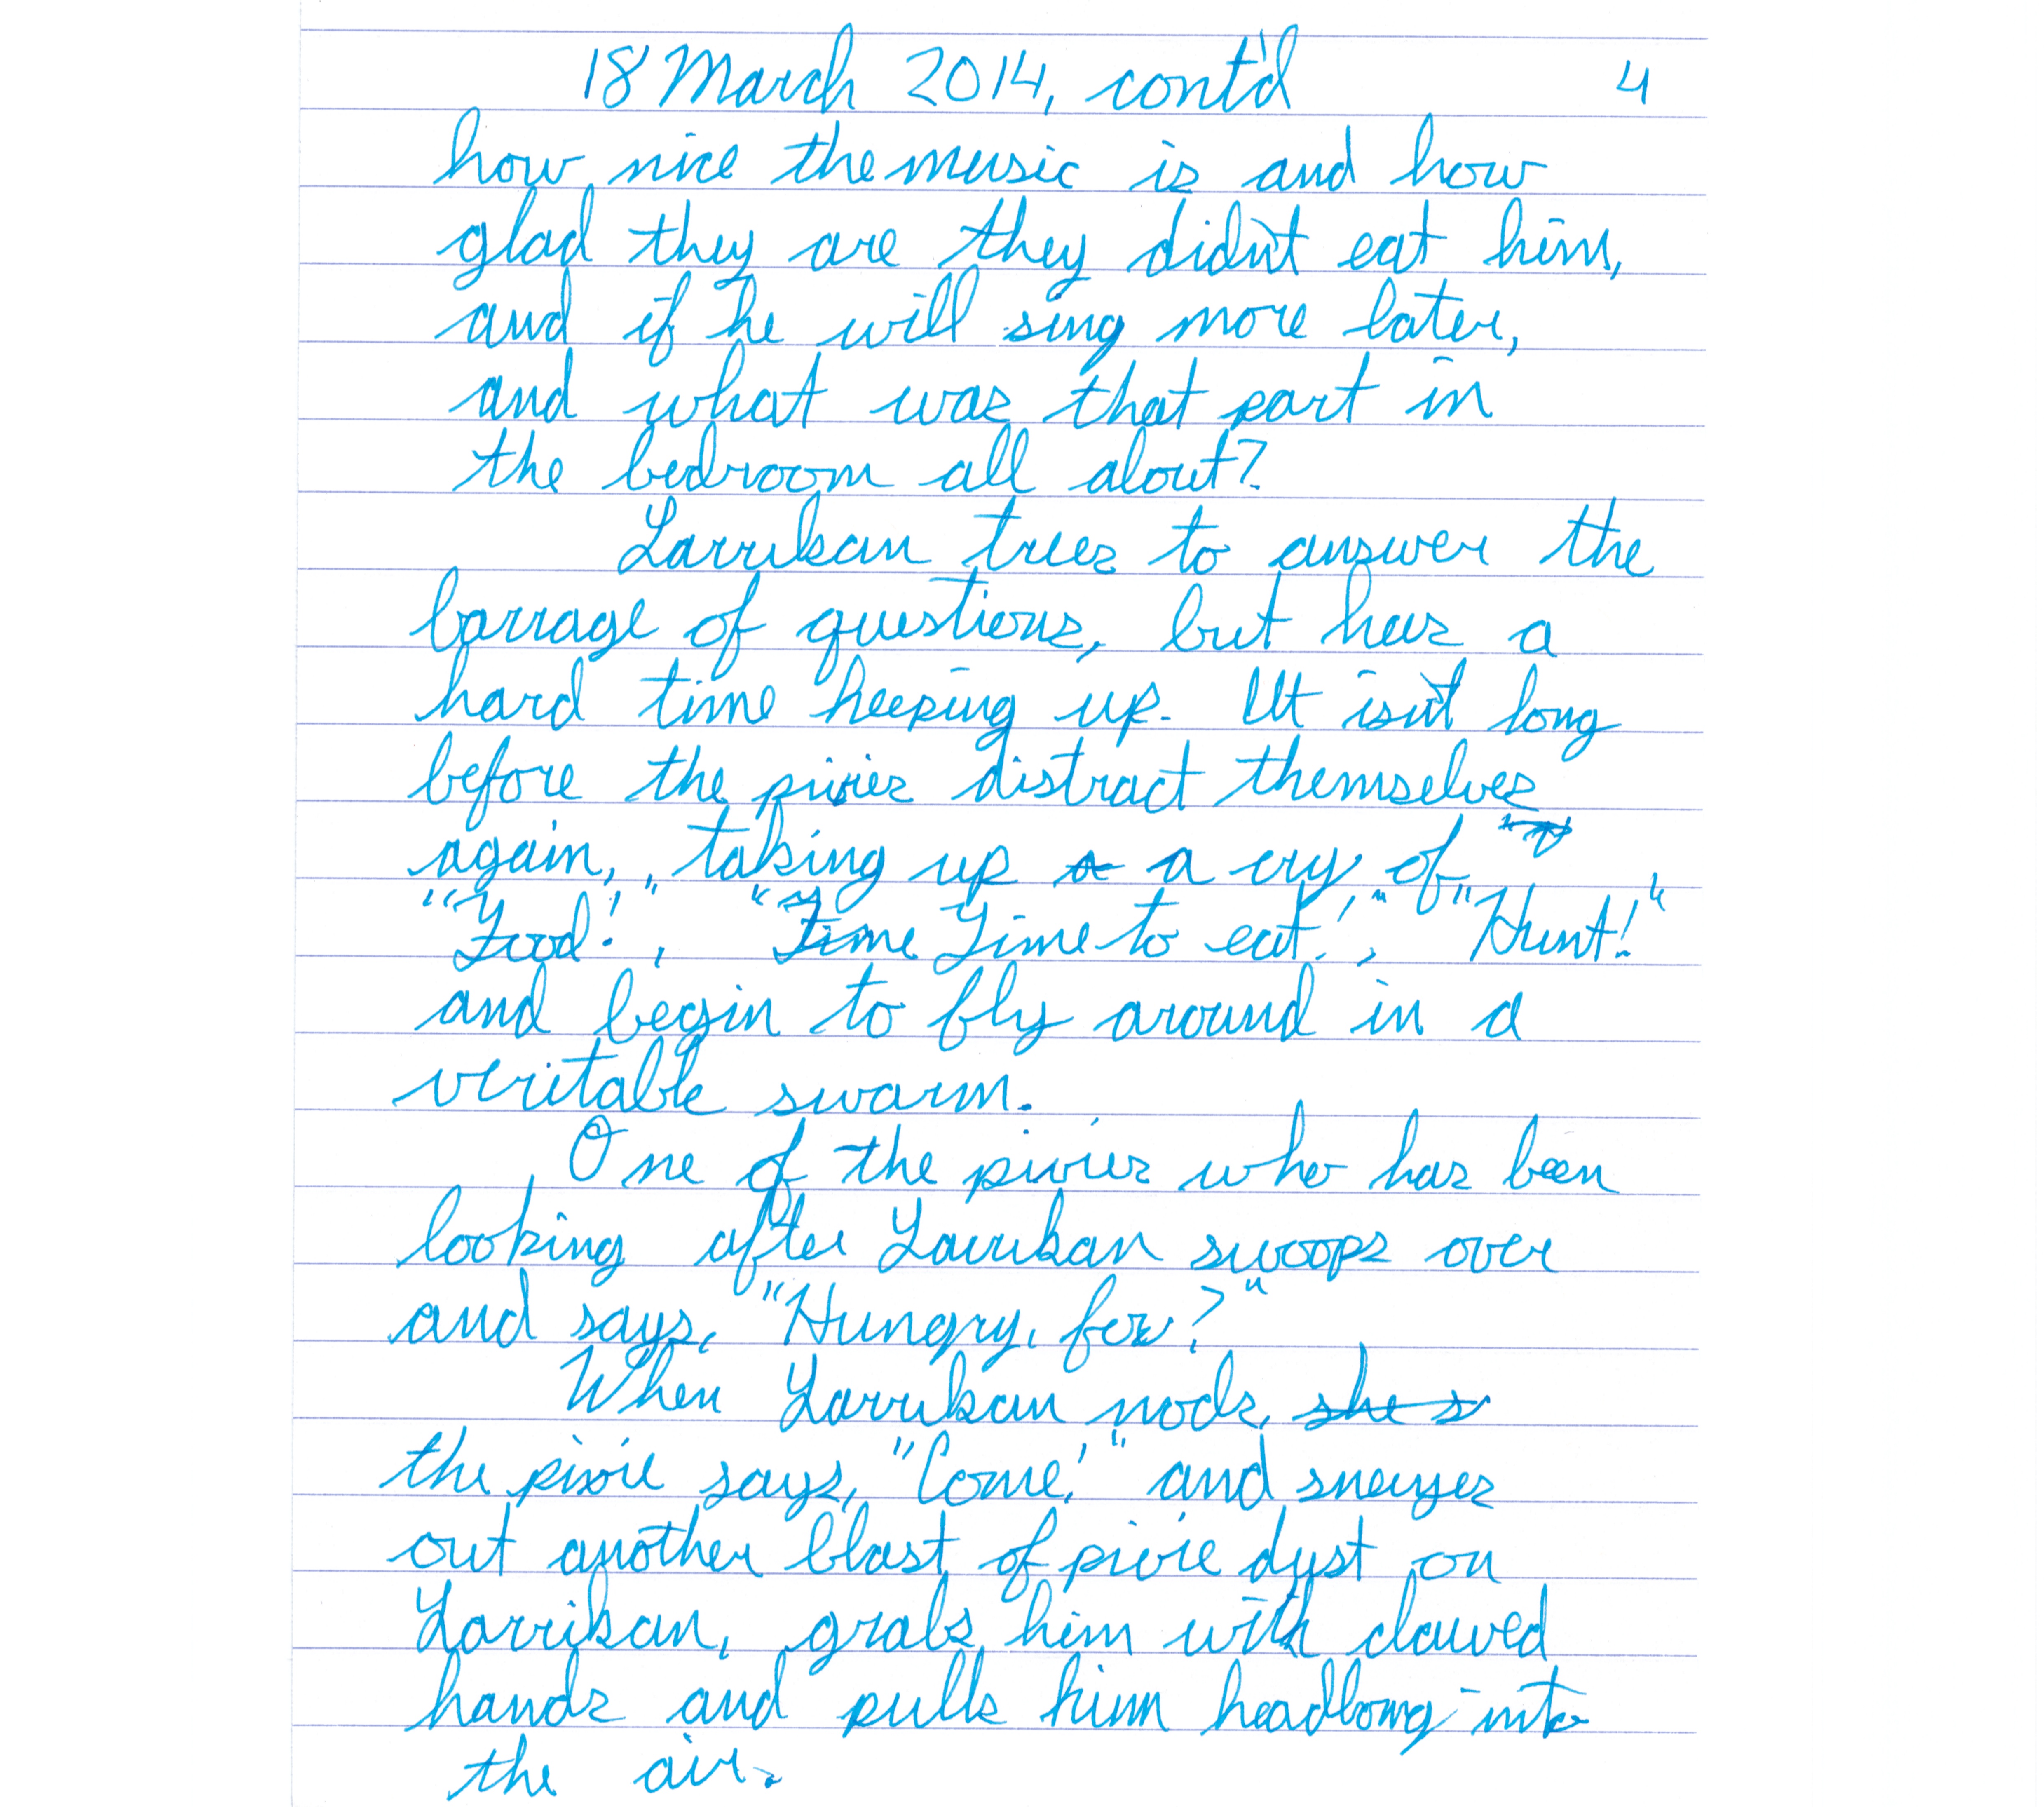 18 March 2014, cont'd 4
how nice the music is and how
glad they are they didn't eat him,
and if he will sing more later,
and what was that part in
the bedroom all about?
Larrikan tries to answer the
barrage of questions, but has a
hard time keeping up. It isn't long
before the pixies distract themselves
again, taking up a a cry of
"Food!", "Time Time to eat!", "Hunt!"
and begin to fly around in a
veritable swarm.
One of the pixies who has been
looking after Larrikan swoops over
and says, "Hungry, fox?"
When Larrikan nods, she s
the pixie says, "Come!" and sneezes
out another blast of pixie dust on
Larrikan, grabs him with clawed
hands and pulls him headlong into
the air.